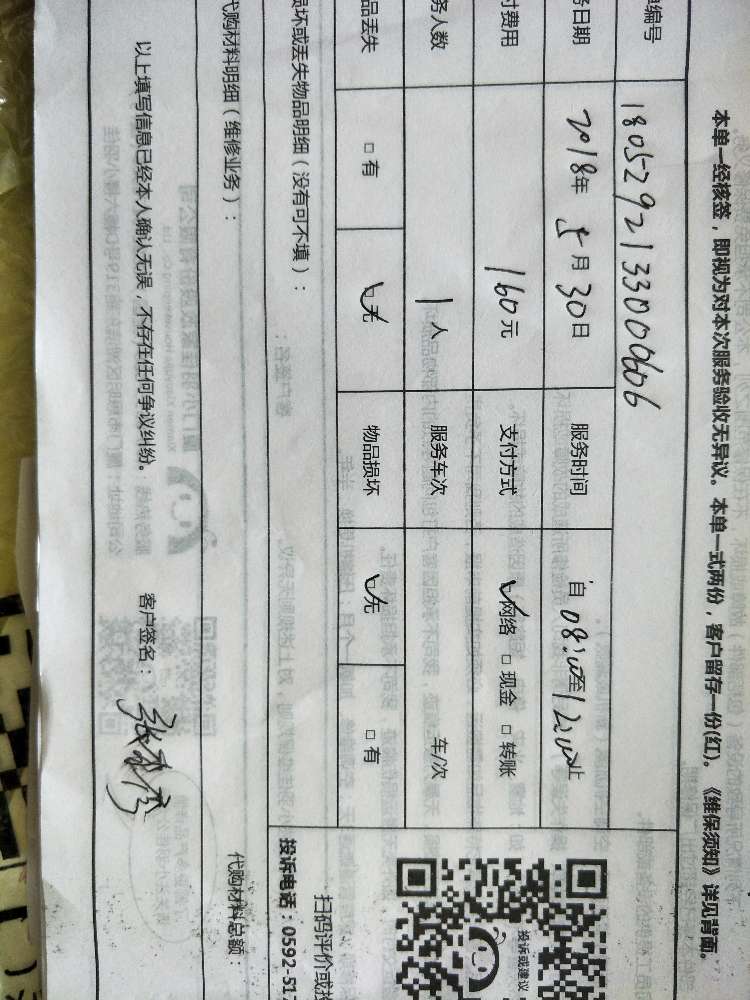 本单一经核签，即视为对本次服务验收无异议。本单一式两份，客户留存一份(红)。《维保须知》详见背面。
单编号 180529213300606
务日期 2018年 5月 30日 服务时间 自 08:00至 12:00止
付费用 160元 支付方式 网络 □ 现金 □ 转账
务人数 1人 服务车次 车/次
品丢失 □ 有 无 物品损坏 无 □ 有
投诉或建议
扫码评价或投
投诉电话：0592-517
损坏或丢失物品明细（没有可不填）：
代购材料明细（维修业务）： 代购材料总额：
以上填写信息已经本人确认无误，不存在任何争议纠纷。 客户签名：